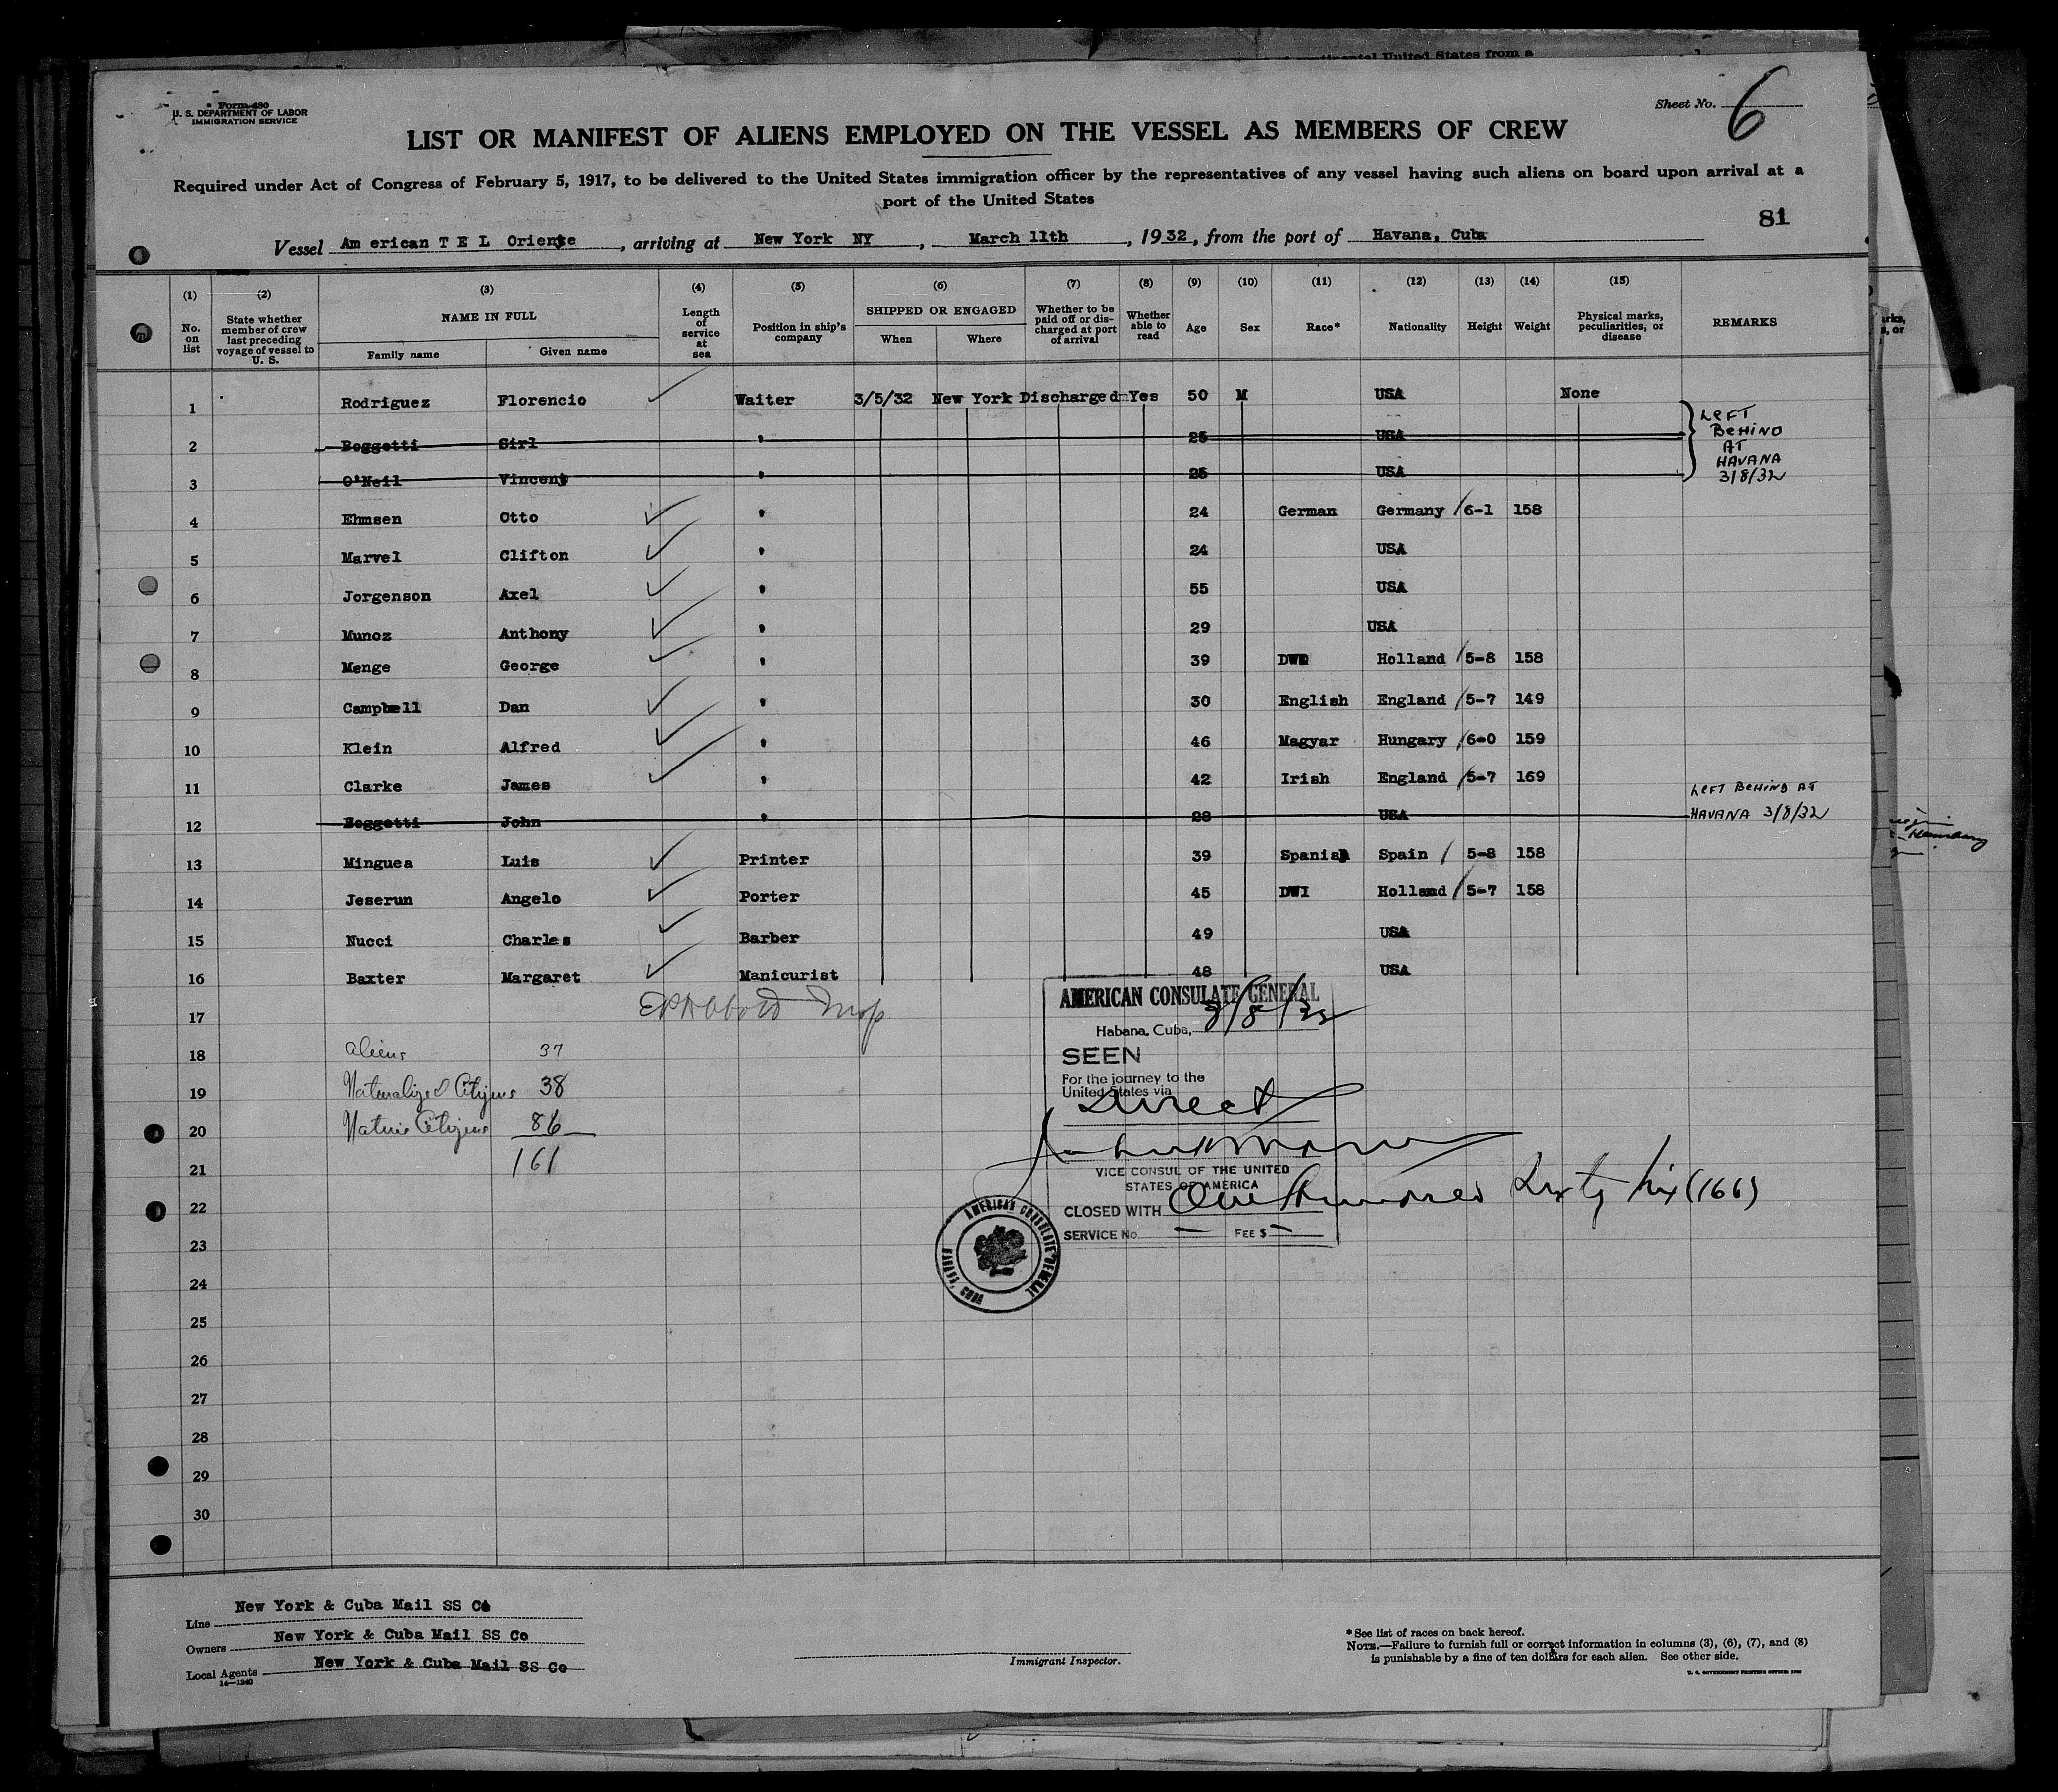 continental United States from a
Form 680
U. S. DEPARTMENT OF LABOR
IMMIGRATION SERVICE
Sheet No. 6
LIST OR MANIFEST OF ALIENS EMPLOYED ON THE VESSEL AS MEMBERS OF CREW
Required under Act of Congress of February 5, 1917, to be delivered to the United States immigration officer by the representatives of any vessel having such aliens on board upon arrival at a
port of the United States
81
Vessel Am erican T E L Oriente, arriving at New York NY, March 11th, 1932, from the port of Havana, Cuba
(1) (2) (3) (4) (5) (6) (7) (8) (9) (10) (11) (12) (13) (14) (15)
No. on list
State whether member of crew last preceding voyage of vessel to U. S.
NAME IN FULL
Family name Given name
Length of service at sea
Position in ship's company
SHIPPED OR ENGAGED
When Where
Whether to be paid off or discharged at port of arrival
Whether able to read
Age Sex Race* Nationality Height Weight
Physical marks, peculiarities, or disease
REMARKS
1 Rodriguez Florencio Waiter 3/5/32 New York Discharged Yes 50 M USA None
2 Boggetti Girl " 25 USA
3 O'Neil Vincent " 25 USA
LEFT BEHIND AT HAVANA 3/8/32
4 Ehmsen Otto " 24 German Germany 6-1 158
5 Marvel Clifton " 24 USA
6 Jorgenson Axel " 55 USA
7 Munoz Anthony " 29 USA
8 Menge George " 39 Holland 5-8 158
9 Campbell Dan " 30 English England 5-7 149
10 Klein Alfred " 46 Magyar Hungary 6-0 159
11 Clarke James " 42 Irish England 5-7 169
12 Boggetti John " 28 USA LEFT BEHIND AT HAVANA 3/8/32
13 Minguea Luis Printer 39 Spanish Spain 5-8 158
14 Jeserun Angelo Porter 45 DWI Holland 5-7 158
15 Nucci Charles Barber 49 USA
16 Baxter Margaret Manicurist 48 USA
17
18 Aliens 37
19 Naturalized Citizens 38
20 Native Citizens 86
21 161
22
23
24
25
26
27
28
29
30
AMERICAN CONSULATE GENERAL
Habana, Cuba, 3/8/32
SEEN
For the journey to the
United States via
Direct
VICE CONSUL OF THE UNITED
STATES OF AMERICA
CLOSED WITH One Hundred Sixty Six (166)
SERVICE No. — FEE $ —
AMERICAN CONSULATE GENERAL
HABANA, CUBA
Line New York & Cuba Mail SS Co
Owners New York & Cuba Mail SS Co
Local Agents New York & Cuba Mail SS Co
14—1240
Immigrant Inspector.
* See list of races on back hereof.
NOTE.—Failure to furnish full or correct information in columns (3), (6), (7), and (8)
is punishable by a fine of ten dollars for each alien. See other side.
U. S. GOVERNMENT PRINTING OFFICE: 1930